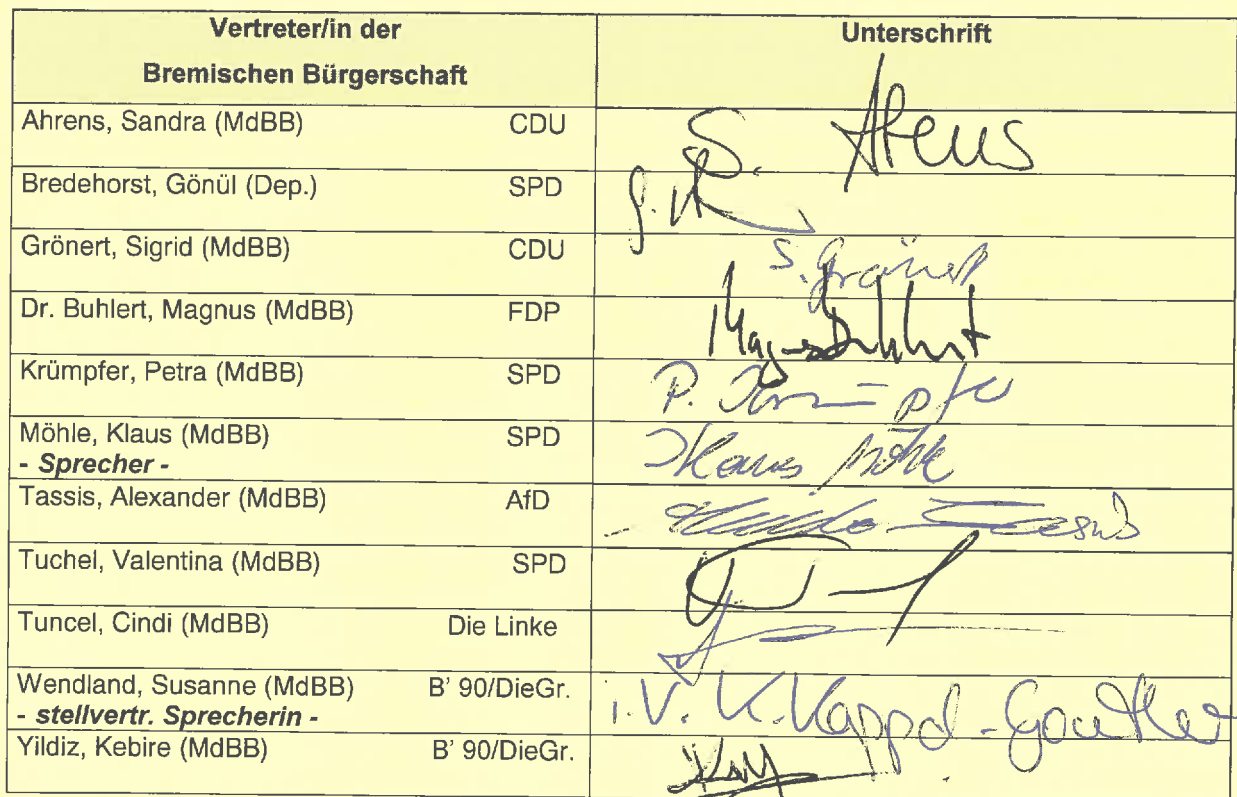 Vertreter/in der
Bremischen Bürgerschaft
Unterschrift
Ahrens, Sandra (MdBB) CDU S. Ahrens
Bredehorst, Gönül (Dep.) SPD
Grönert, Sigrid (MdBB) CDU S. Grönert
Dr. Buhlert, Magnus (MdBB) FDP Magnus Buhlert
Krümpfer, Petra (MdBB) SPD P. Krümpfer
Möhle, Klaus (MdBB) SPD Klaus Möhle
- Sprecher -
Tassis, Alexander (MdBB) AfD
Tuchel, Valentina (MdBB) SPD
Tuncel, Cindi (MdBB) Die Linke
Wendland, Susanne (MdBB) B' 90/DieGr. i.V. K. Kappel-Gonther
- stellvertr. Sprecherin -
Yildiz, Kebire (MdBB) B' 90/DieGr.